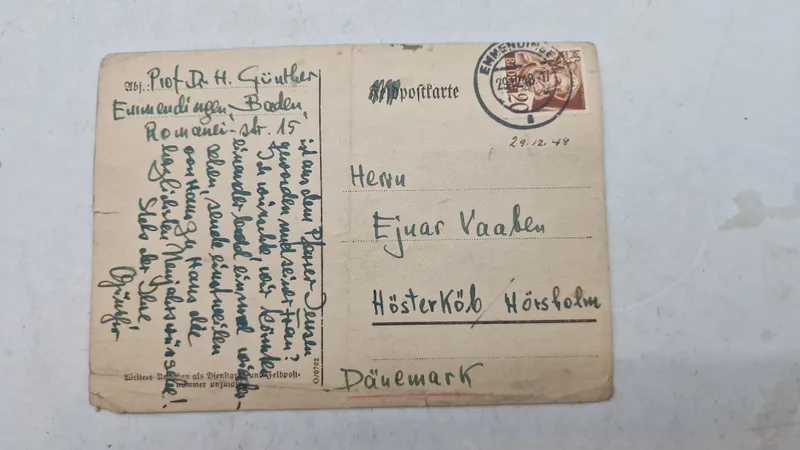 Abs.: Prof. Dr. H. Günther
Emmendingen, Baden
Romanei-str. 15
ist aus dem Pfarrer Jensen
geworden und seiner Frau?
Ich wünschte, wir könnten
einander bald einmal wieder-
sehen, sende einstweilen
von Haus zu Haus die
herzlichsten Neujahrswünsche!
Stets der Ihre
Günther
Weitere Angaben als Dienstgrad und Feldpost-
nummer unzulässig
O/0782
Feldpostkarte
EMMENDINGEN
29.12.48
a
BADEN
20
29.12.48
Herrn
Ejnar Vaaben
Hösterköb / Hörsholm
Dänemark